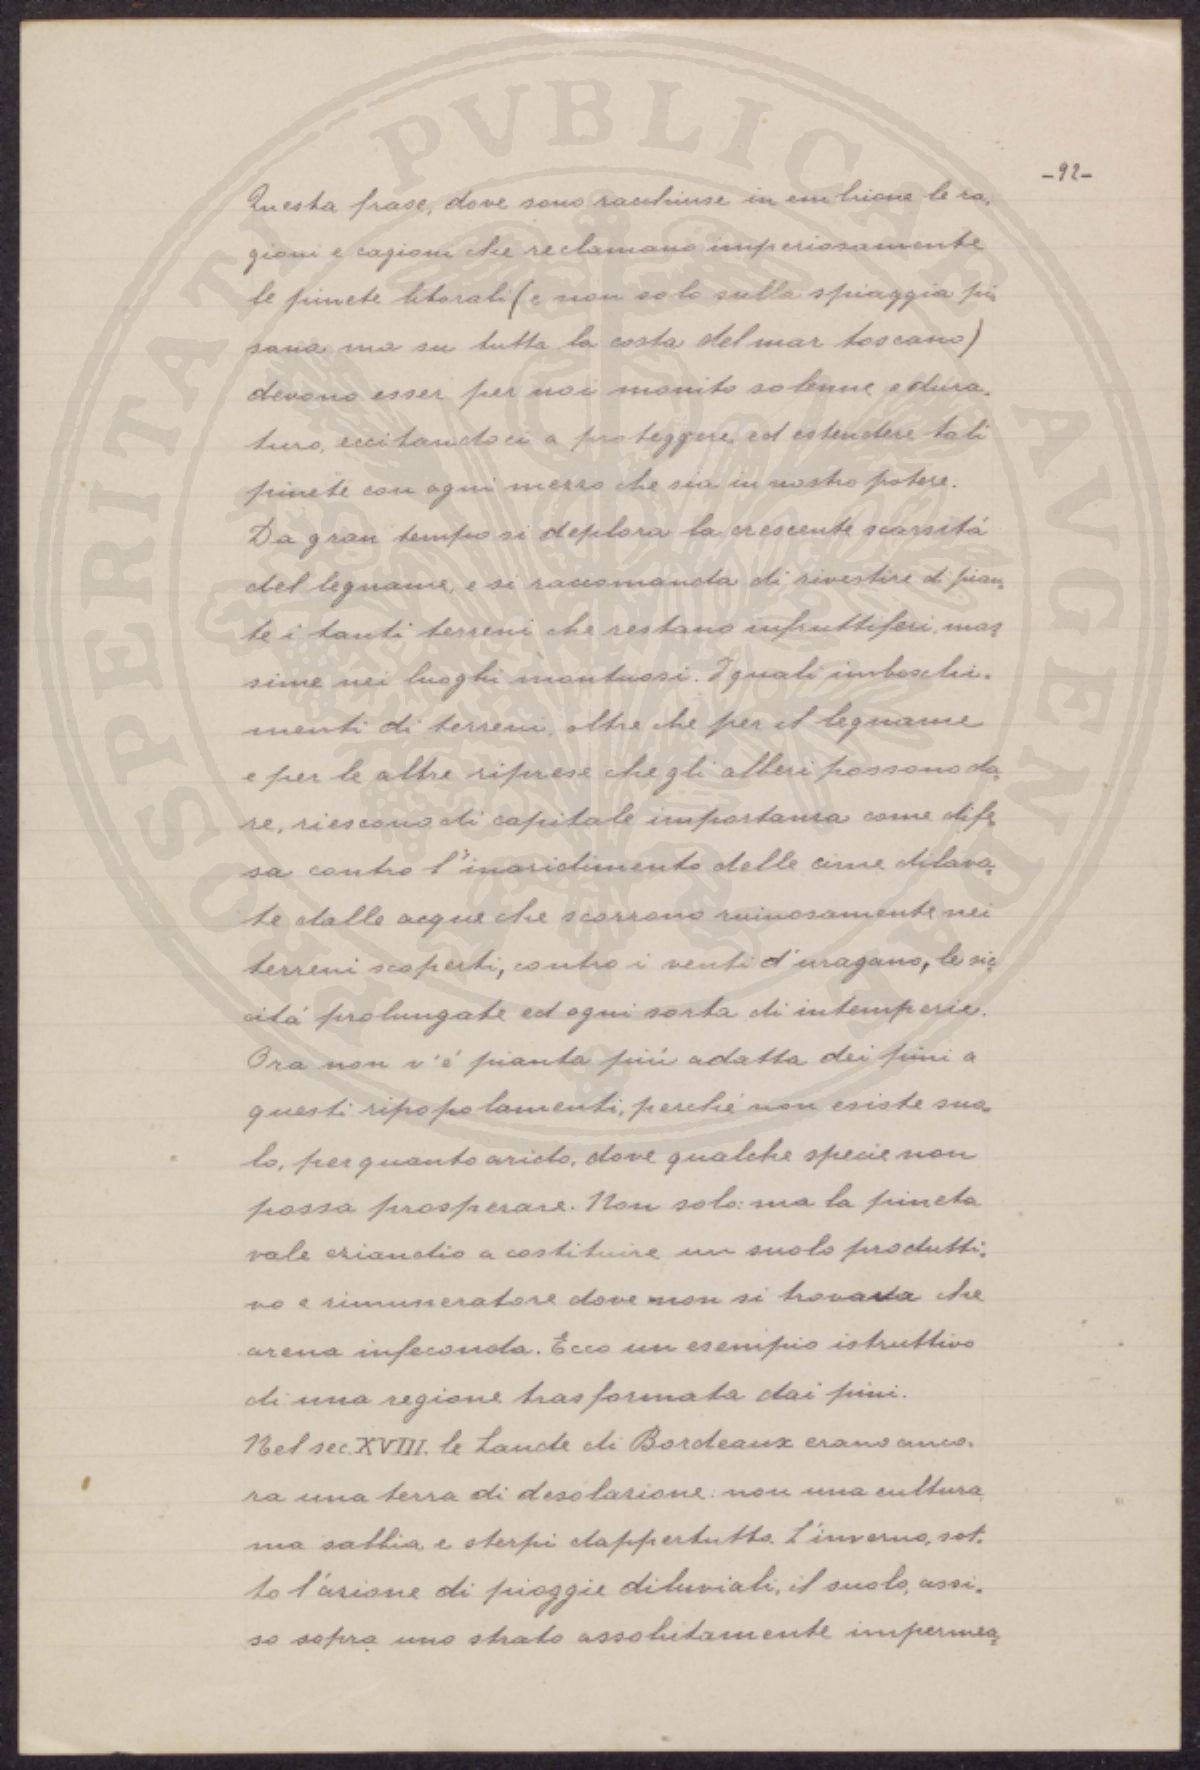 -92-
Questa frase, dove sono racchiuse in embrione le ra-
gioni e cagioni che reclamano imperiosamente
le pinete litorali (e non solo sulla spiaggia pi-
sana ma su tutta la costa del mar toscano)
devono esser per noi monito solenne e dura-
turo, eccitandoci a proteggere ed estendere tali
pinete con ogni mezzo che sia in nostro potere.
Da gran tempo si deplora la crescente scarsitá
del legname, e si raccomanda di rivestire di pian-
te i tanti terreni che restano infruttiferi, mas-
sime nei luoghi montuosi. I quali imboschi-
menti di terreni, oltre che per il legname
e per le altre riprese che gli alberi possono da-
re, riescono di capitale importanza come dife-
sa contro l'inaridimento delle cime dilava-
te dalle acque che scorrono ruinosamente nei
terreni scoperti, contro i venti d'uragano, le sic-
citá prolungate ed ogni sorta di intemperie.
Ora non v'é pianta piú adatta dei pini a
questi ripopolamenti, perché non esiste suo-
lo, per quanto arido, dove qualche specie non
possa prosperare. Non solo: ma la pineta
vale eziandio a costituire un suolo produtti-
vo e rimuneratore dove non si trovava che
arena infeconda. Ecco un esempio istruttivo
di una regione trasformata dai pini.
Nel sec. XVIII. le Lande di Bordeaux erano anco-
ra una terra di desolazione: non una cultura
ma sabbia e sterpi dappertutto. L'inverno, sot-
to l'azione di pioggie diluviali, il suolo, assi-
so sopra uno strato assolutamente impermea-
PROSPERITATI PVBLICAE AVGENDAE